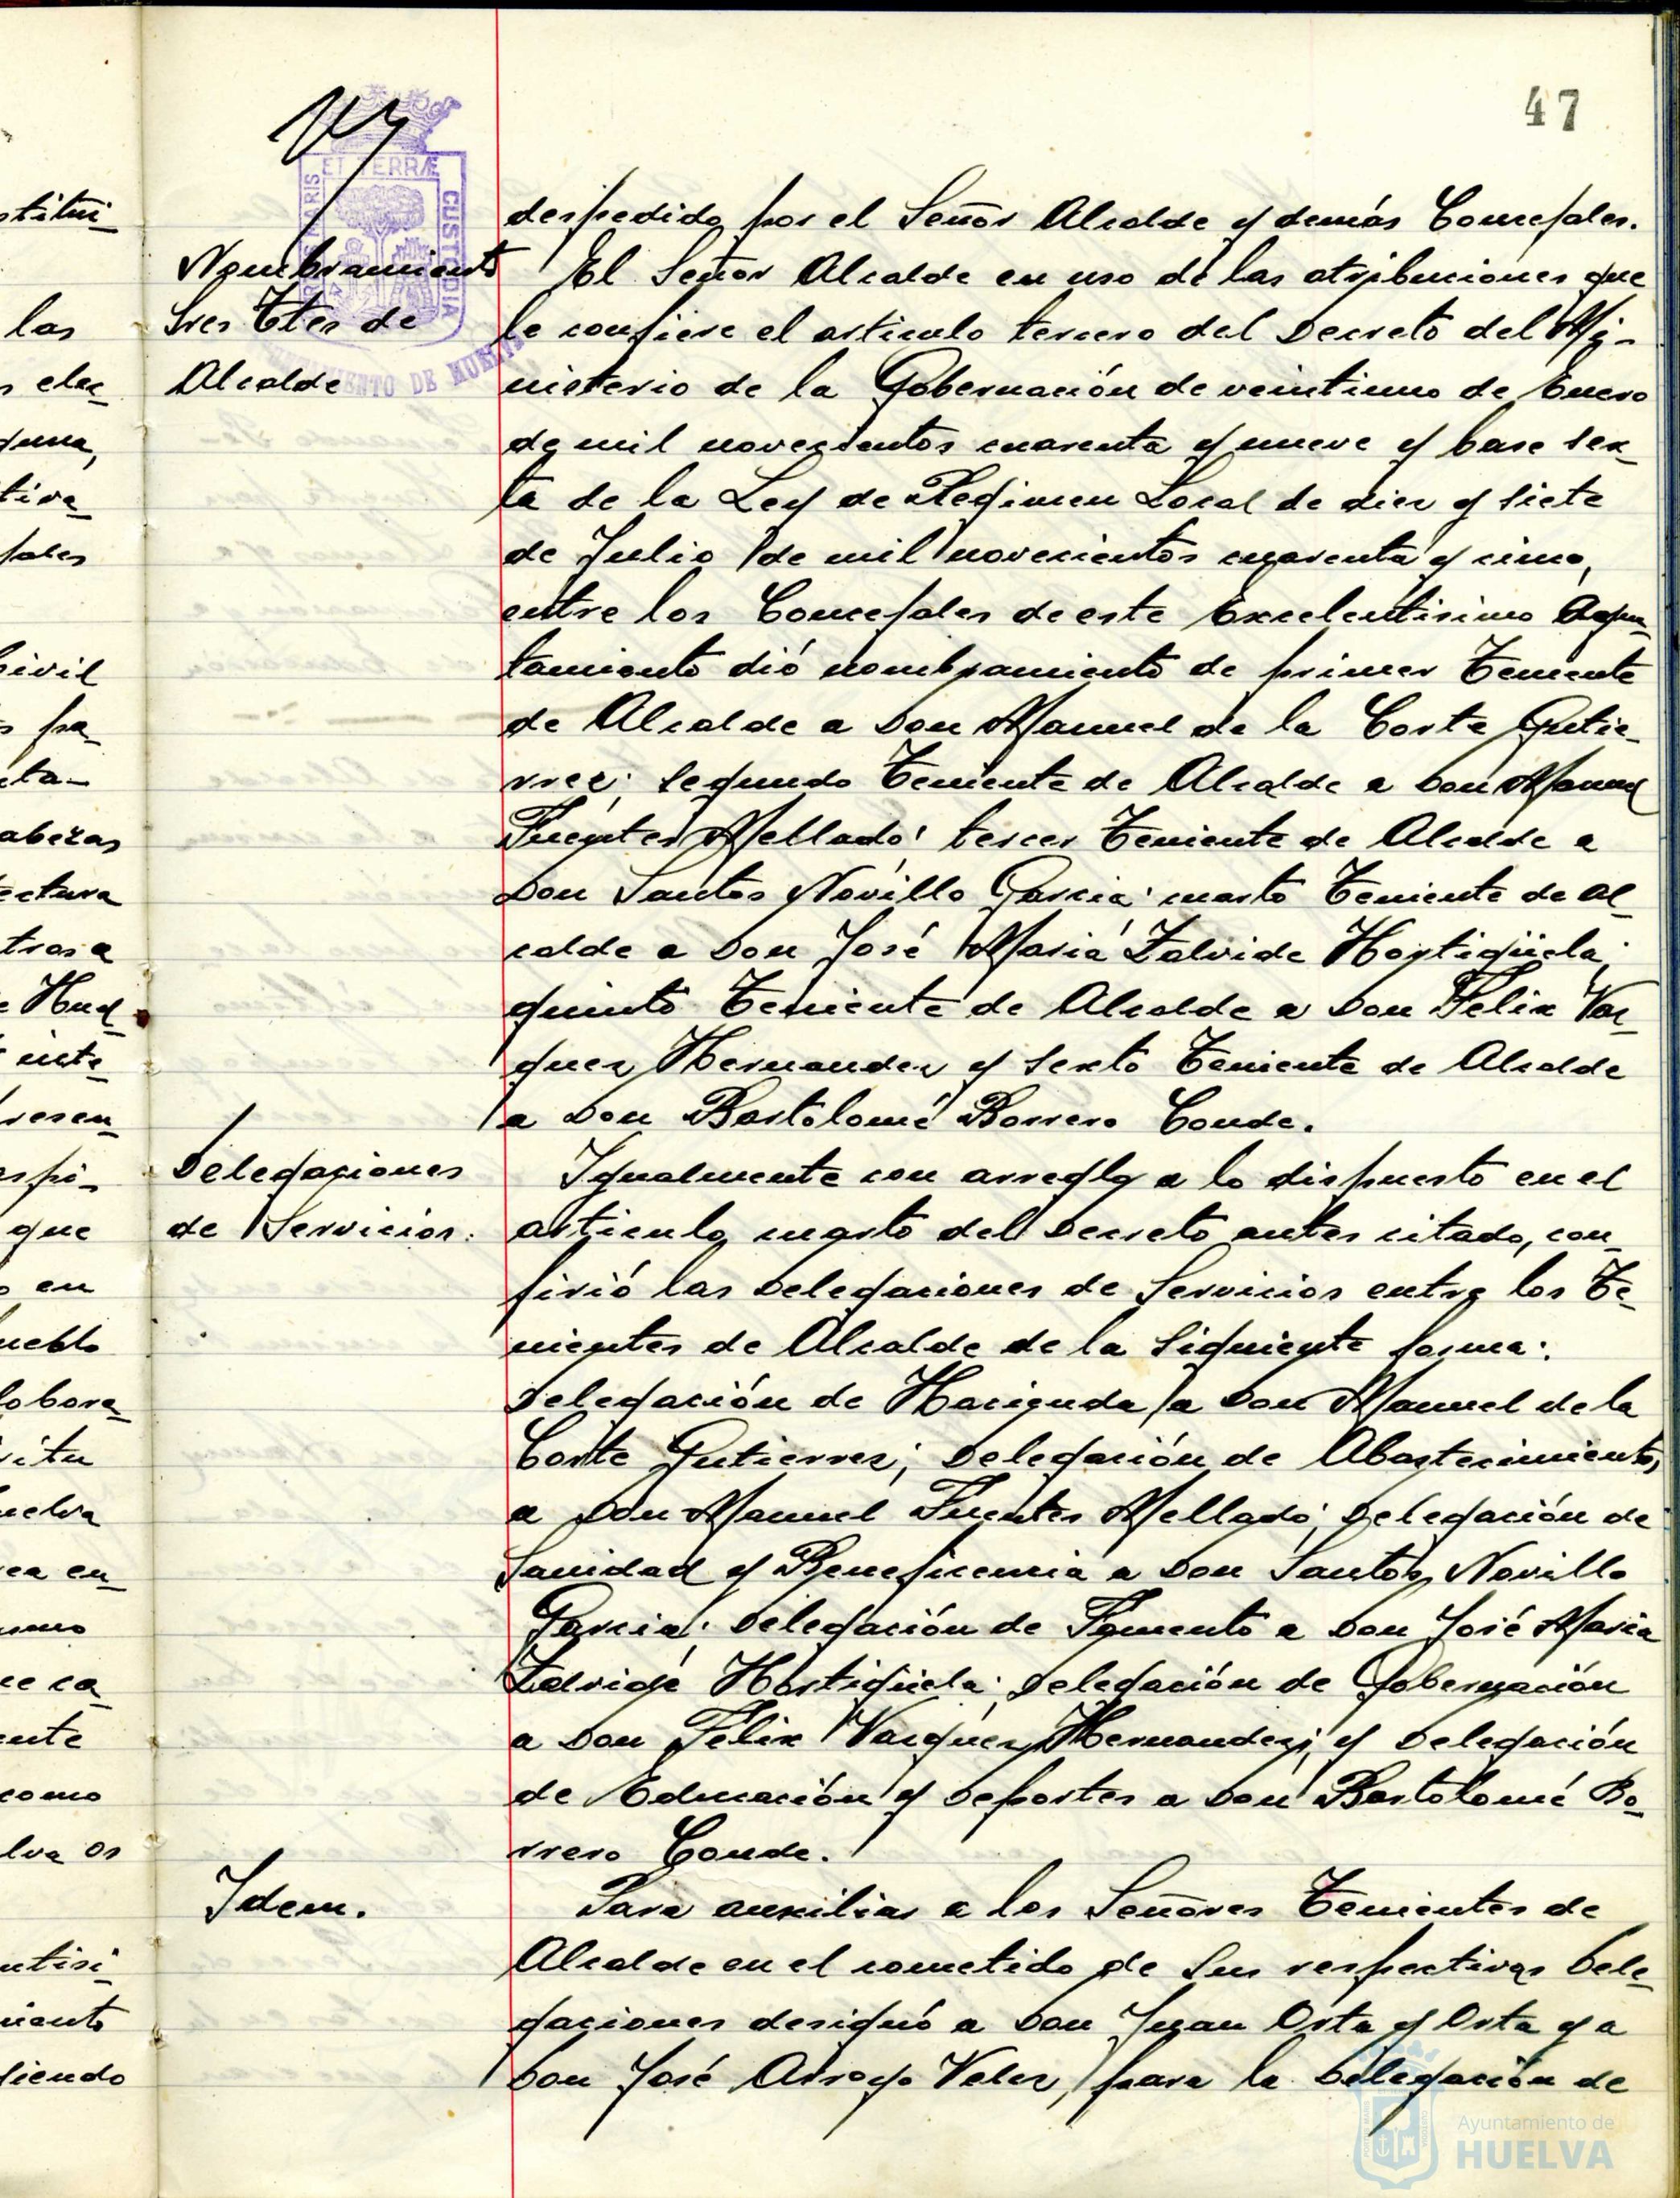 47
ET TERRÆ
MARIS
CUSTODIA
AYUNTAMIENTO DE HUELVA
despedido por el Señor Alcalde y demás Concejales.
Nombramiento
Sres Ttes de
Alcalde
El Señor Alcalde en uso de las atribuciones que
le confiere el articulo tercero del Decreto del Mi-
nisterio de la Gobernación de veintiuno de Enero
de mil novecientos cuarenta y nueve y base sex-
ta de la Ley de Regimen Local de diez y siete
de Julio de mil novecientos cuarenta y cinco,
entre los Concejales de este Excelentisimo Ayun-
tamiento dió nombramiento de primer Teniente
de Alcalde a Don Manuel de la Corte Gutie-
rrez; segundo Teniente de Alcalde a Don Manuel
Fuentes Mellado; tercer Teniente de Alcalde a
Don Santos Novillo Garcia; cuarto Teniente de Al-
calde a Don José Maria Zalvide Hortigüela;
quinto Teniente de Alcalde a Don Felix Vaz-
quez Hernandez y sexto Teniente de Alcalde
a Don Bartolomé Borrero Conde.
Delegaciones
de Servicios.
Igualmente con arreglo a lo dispuesto en el
articulo cuarto del Decreto antes citado, con-
firió las Delegaciones de Servicios entre los Te-
nientes de Alcalde de la siguiente forma:
Delegación de Hacienda a Don Manuel de la
Corte Gutierrez; Delegación de Abastecimientos,
a Don Manuel Fuentes Mellado; Delegación de
Sanidad y Beneficencia a Don Santos Novillo
Garcia; Delegación de Fomento a Don José Maria
Zalvide Hortigüela; Delegación de Gobernación
a Don Felix Vazquez Hernandez; y Delegación
de Educación y Deportes a Don Bartolomé Bo-
rrero Conde.
Idem.
Para auxiliar a los Señores Tenientes de
Alcalde en el cometido de sus respectivas Dele-
gaciones designó a Don Juan Orta y Orta y a
Don José Arroyo Velez, para la Delegación de
Ayuntamiento de
HUELVA